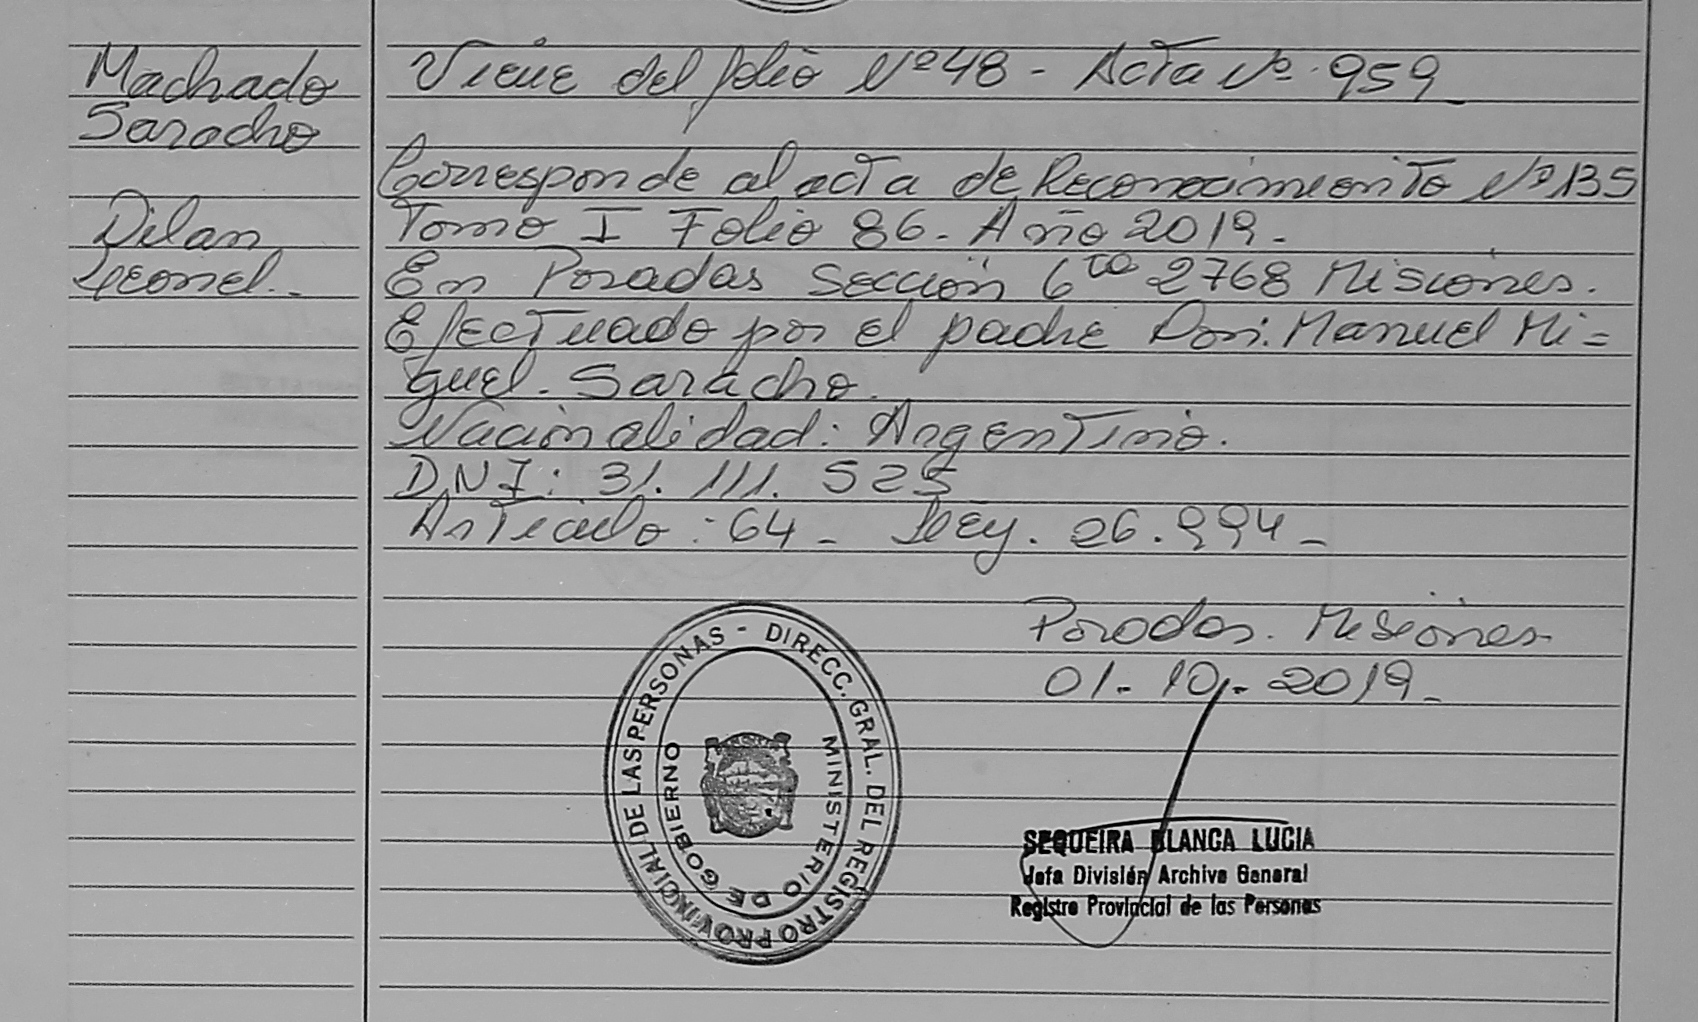 Machado
Saracho
Dilan
Leonel.-
Viene del folio Nº 48 - Acta Nº 959
Corresponde al acta de Reconocimiento Nº 135
Tomo I Folio 86. Año 2019.
En Posadas Sección 6ta 2768 Misiones.
Efectuado por el padre Don: Manuel Mi=
guel. Saracho.
Nacionalidad: Argentino.
D.N.I: 31. 111. 525
Articulo: 64 - Ley. 26.994 -
Posadas. Misiones
01-10-2019-
DIRECC. GRAL. DEL REGISTRO PROVINCIAL DE LAS PERSONAS -
MINISTERIO DE GOBIERNO
SEQUEIRA BLANCA LUCIA
Jefa División Archivo General
Registro Provincial de las Personas